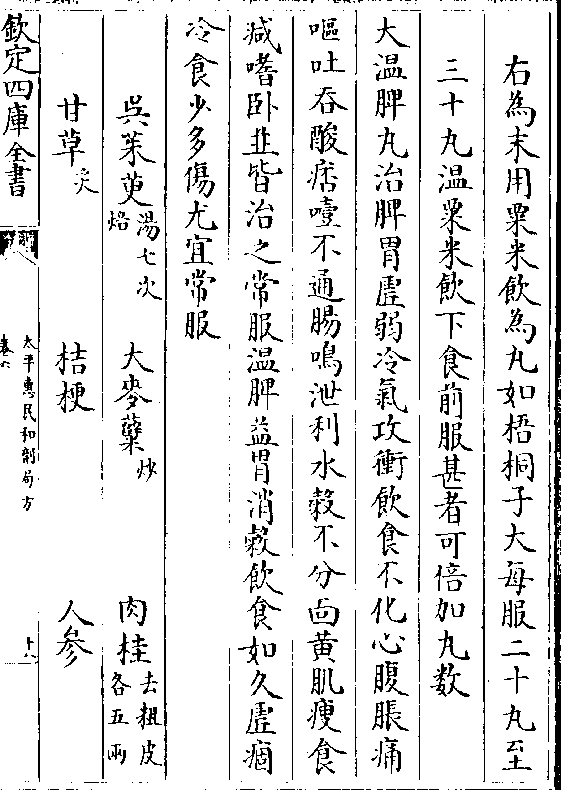 右為末用粟米飲為丸如梧桐子大每服二十丸至
三十丸温粟米飲下食前服甚者可倍加丸数
大温脾丸治脾胃虛弱冷氣攻衝飲食不化心腹脹痛
嘔吐吞酸痞噎不通腸鳴泄利水榖不分面黄肌瘦食
減嗜卧並皆治之常服温脾益胃消榖飲食如久虛痼
冷食少多傷尤宜常服
吳茱萸湯七次焙 大麥糵炒 肉桂去粗皮各五兩
甘草炙 桔梗 人參
欽定四庫全書 太平惠民和劑局方卷六 十六